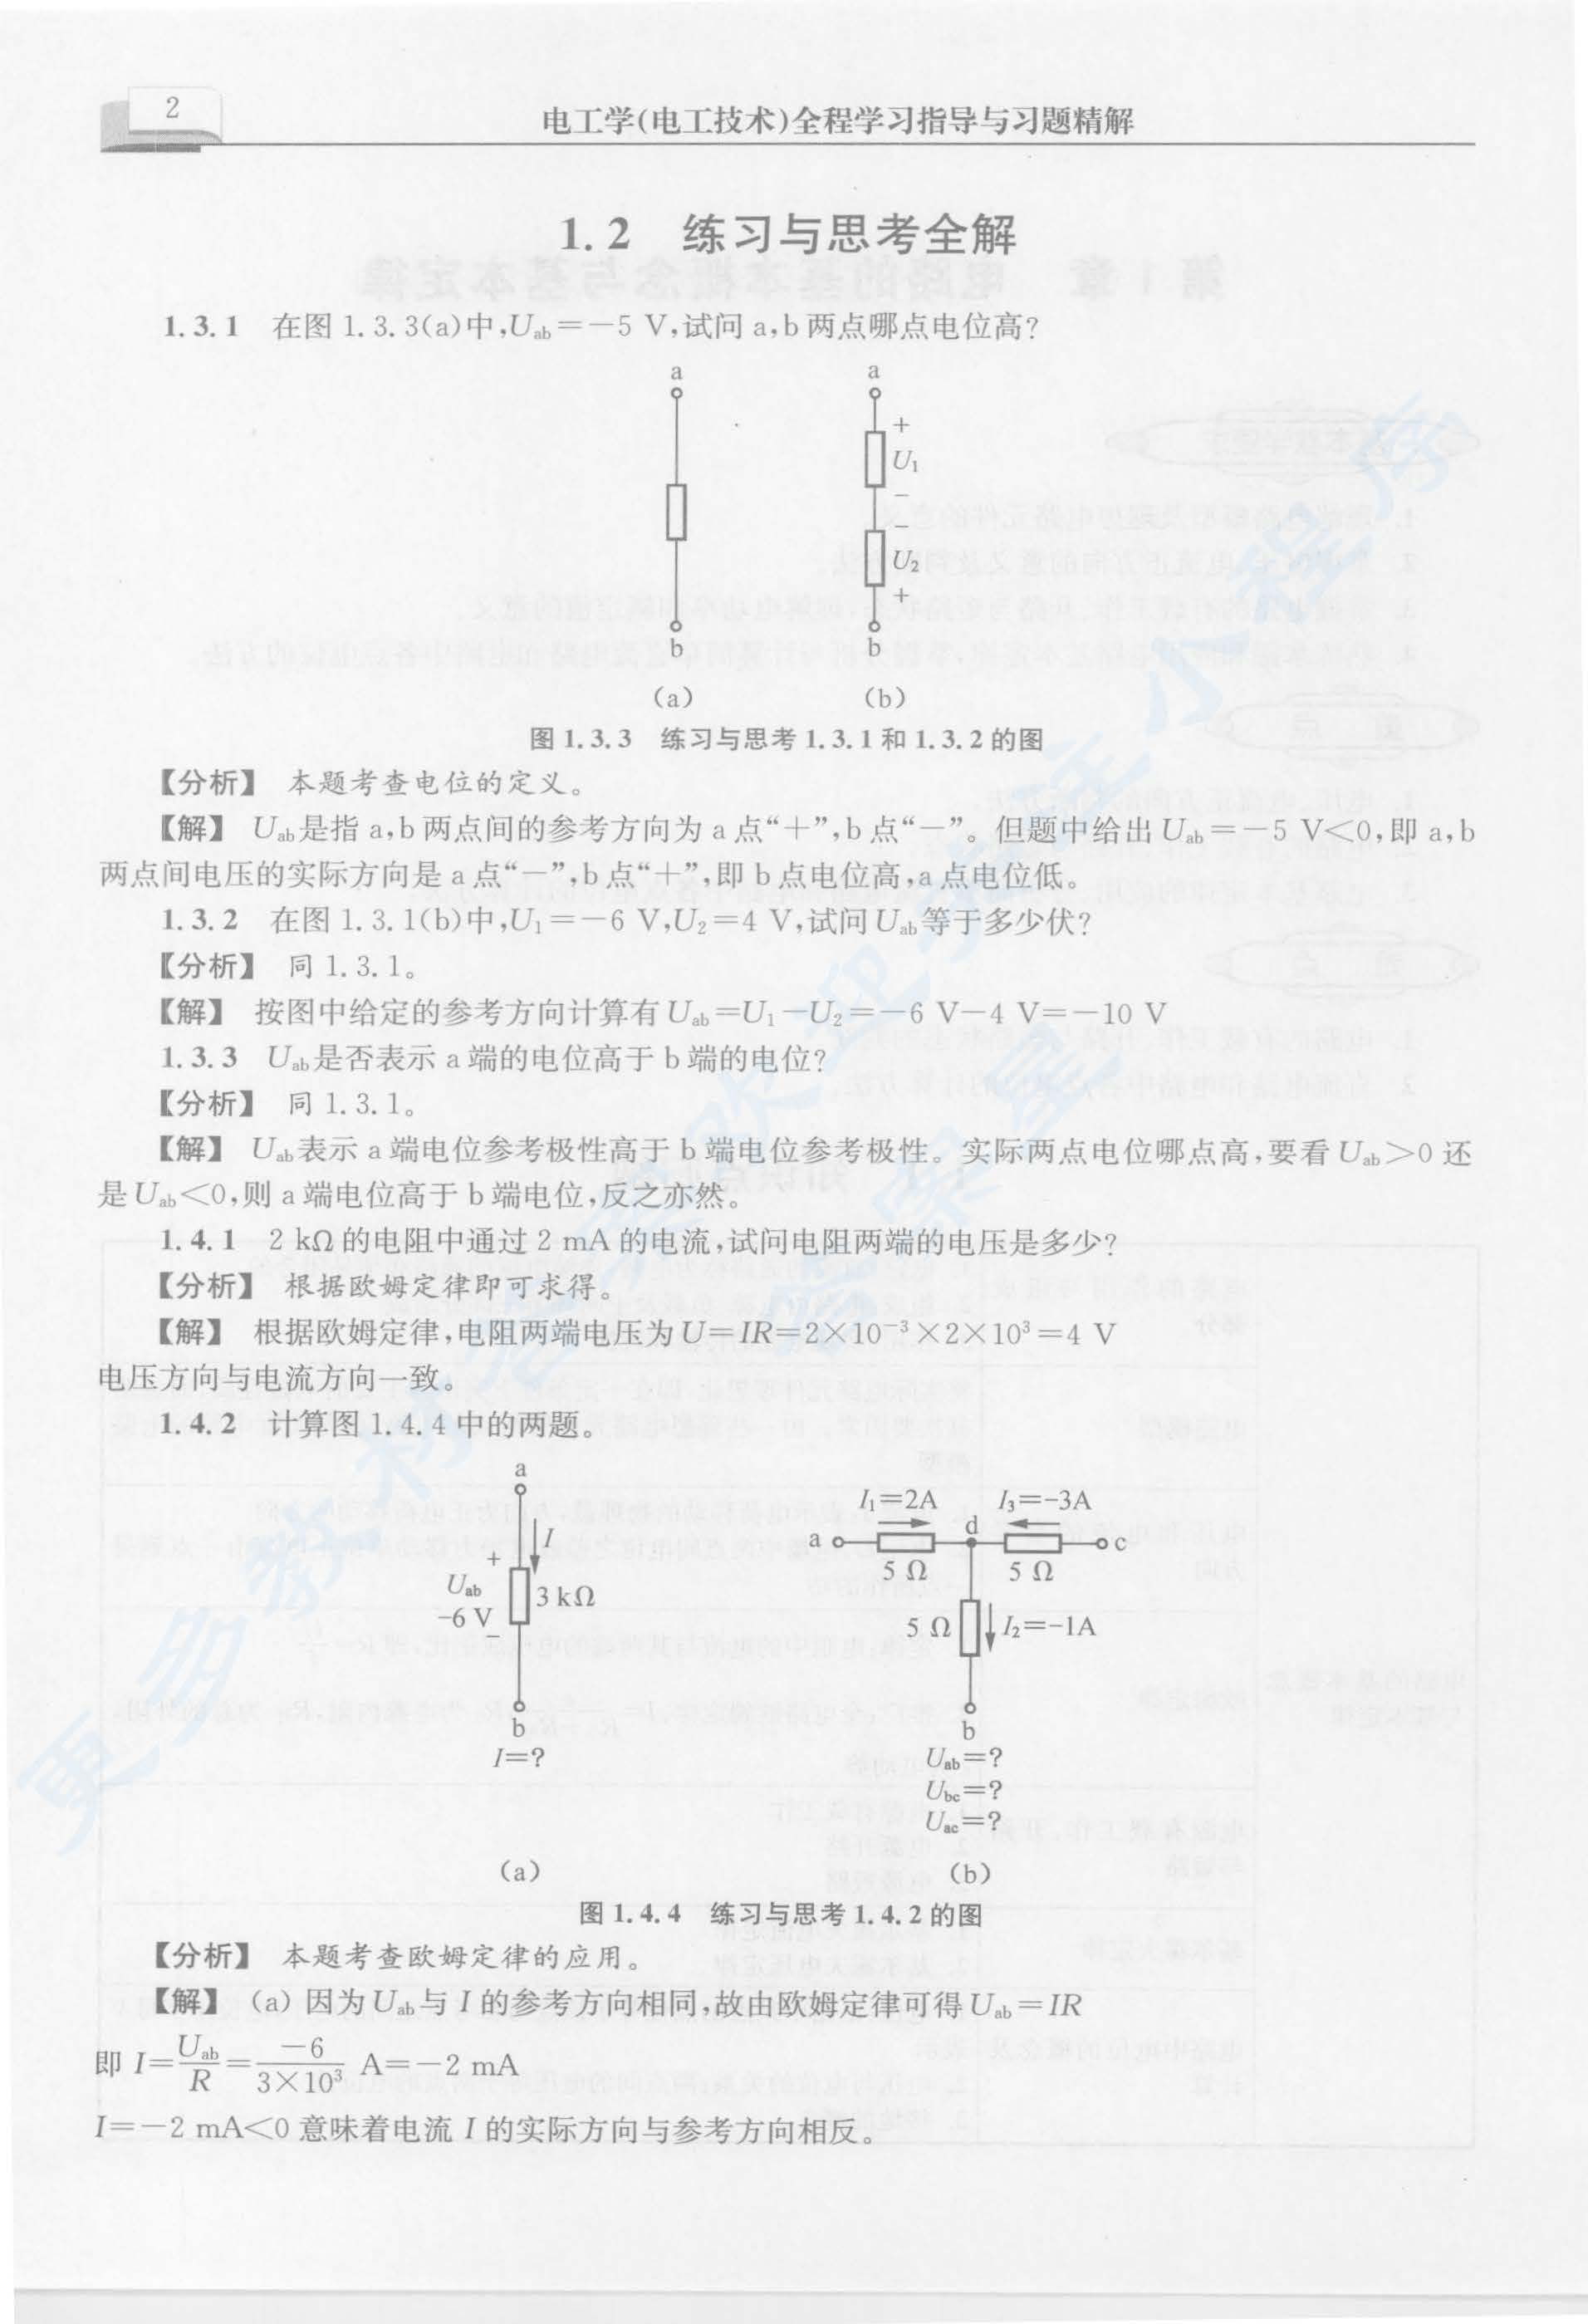 2
电工学(电工技术)全程学习指导与习题精解
1.2 练习与思考全解
1.3.1 在图 1.3.3(a)中,Uab=-5 V,试问 a,b 两点哪点电位高?
a
b
(a)
a
+
U1
-
-
U2
+
b
(b)
图 1.3.3 练习与思考 1.3.1 和 1.3.2 的图
【分析】 本题考查电位的定义。
【解】 Uab是指 a,b 两点间的参考方向为 a 点“+”,b 点“-”。但题中给出 Uab=-5 V<0,即 a,b
两点间电压的实际方向是 a 点“-”,b 点“+”,即 b 点电位高,a 点电位低。
1.3.2 在图 1.3.1(b)中,U1=-6 V,U2=4 V,试问 Uab等于多少伏?
【分析】 同 1.3.1。
【解】 按图中给定的参考方向计算有 Uab=U1-U2=-6 V-4 V=-10 V
1.3.3 Uab是否表示 a 端的电位高于 b 端的电位?
【分析】 同 1.3.1。
【解】 Uab表示 a 端电位参考极性高于 b 端电位参考极性。实际两点电位哪点高,要看 Uab>0 还
是 Uab<0,则 a 端电位高于 b 端电位,反之亦然。
1.4.1 2 kΩ 的电阻中通过 2 mA 的电流,试问电阻两端的电压是多少?
【分析】 根据欧姆定律即可求得。
【解】 根据欧姆定律,电阻两端电压为 U=IR=2×10⁻³×2×10³=4 V
电压方向与电流方向一致。
1.4.2 计算图 1.4.4 中的两题。
a
I
+
Uab
-6 V
-
3 kΩ
b
I=?
(a)
I1=2A
I3=-3A
a
d
c
5 Ω
5 Ω
5 Ω
I2=-1A
b
Uab=?
Ubc=?
Uac=?
(b)
图 1.4.4 练习与思考 1.4.2 的图
【分析】 本题考查欧姆定律的应用。
【解】 (a) 因为 Uab与 I 的参考方向相同,故由欧姆定律可得 Uab=IR
即 I=Uab/R=-6/3×10³ A=-2 mA
I=-2 mA<0 意味着电流 I 的实际方向与参考方向相反。